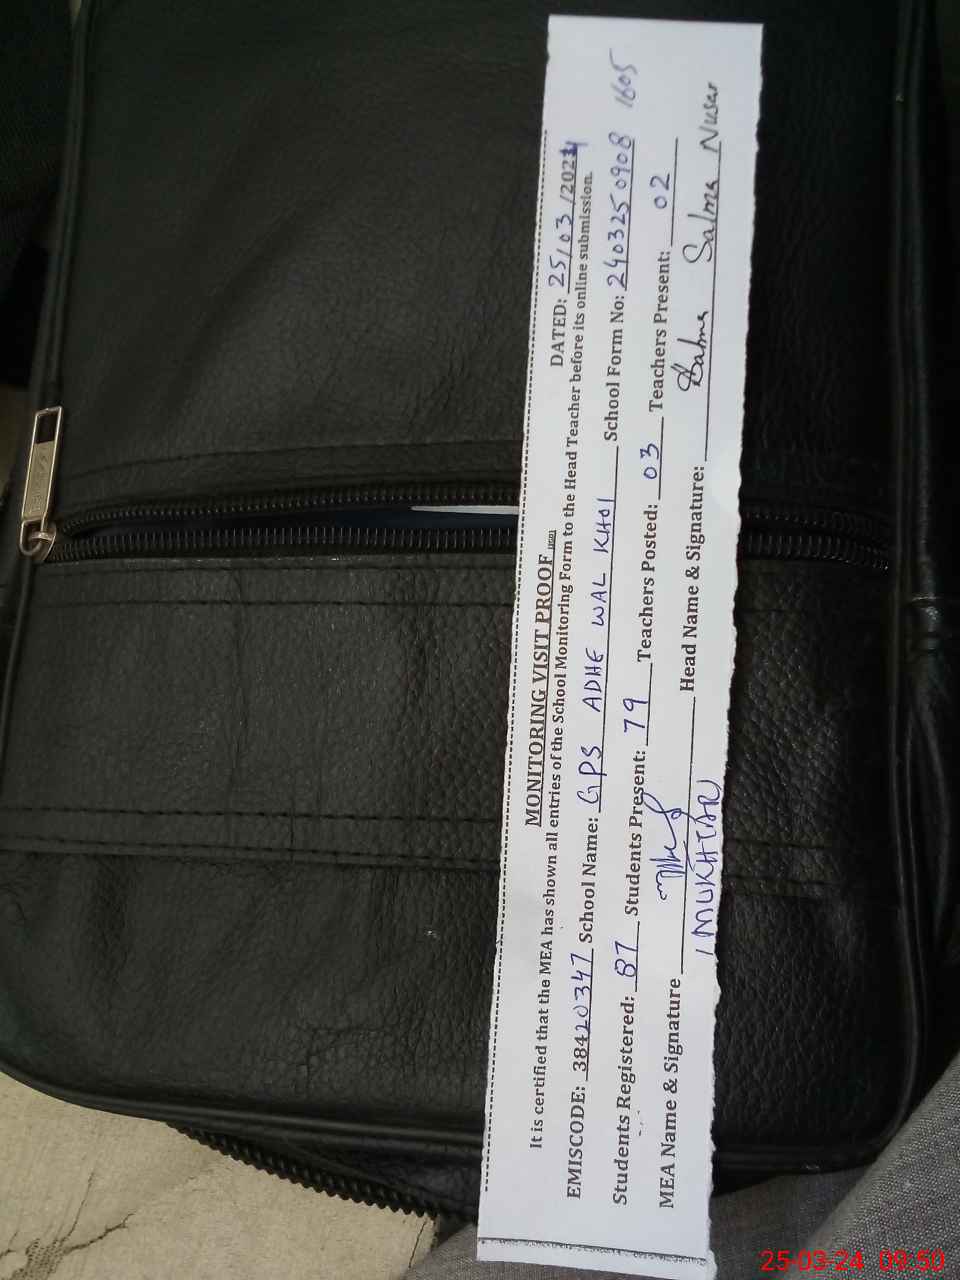 MONITORING VISIT PROOF
DATED: 25/03/2024
It is certified that the MEA has shown all entries of the School Monitoring Form to the Head Teacher before its online submission.
EMISCODE: 38420347 School Name: GPS ADHE WAL KHOI School Form No: 2403250908 1605
Students Registered: 87 Students Present: 79 Teachers Posted: 03 Teachers Present: 02
MEA Name & Signature Head Name & Signature: Salma Salma Nusar
MUKHTAR
25-03-24 09:50